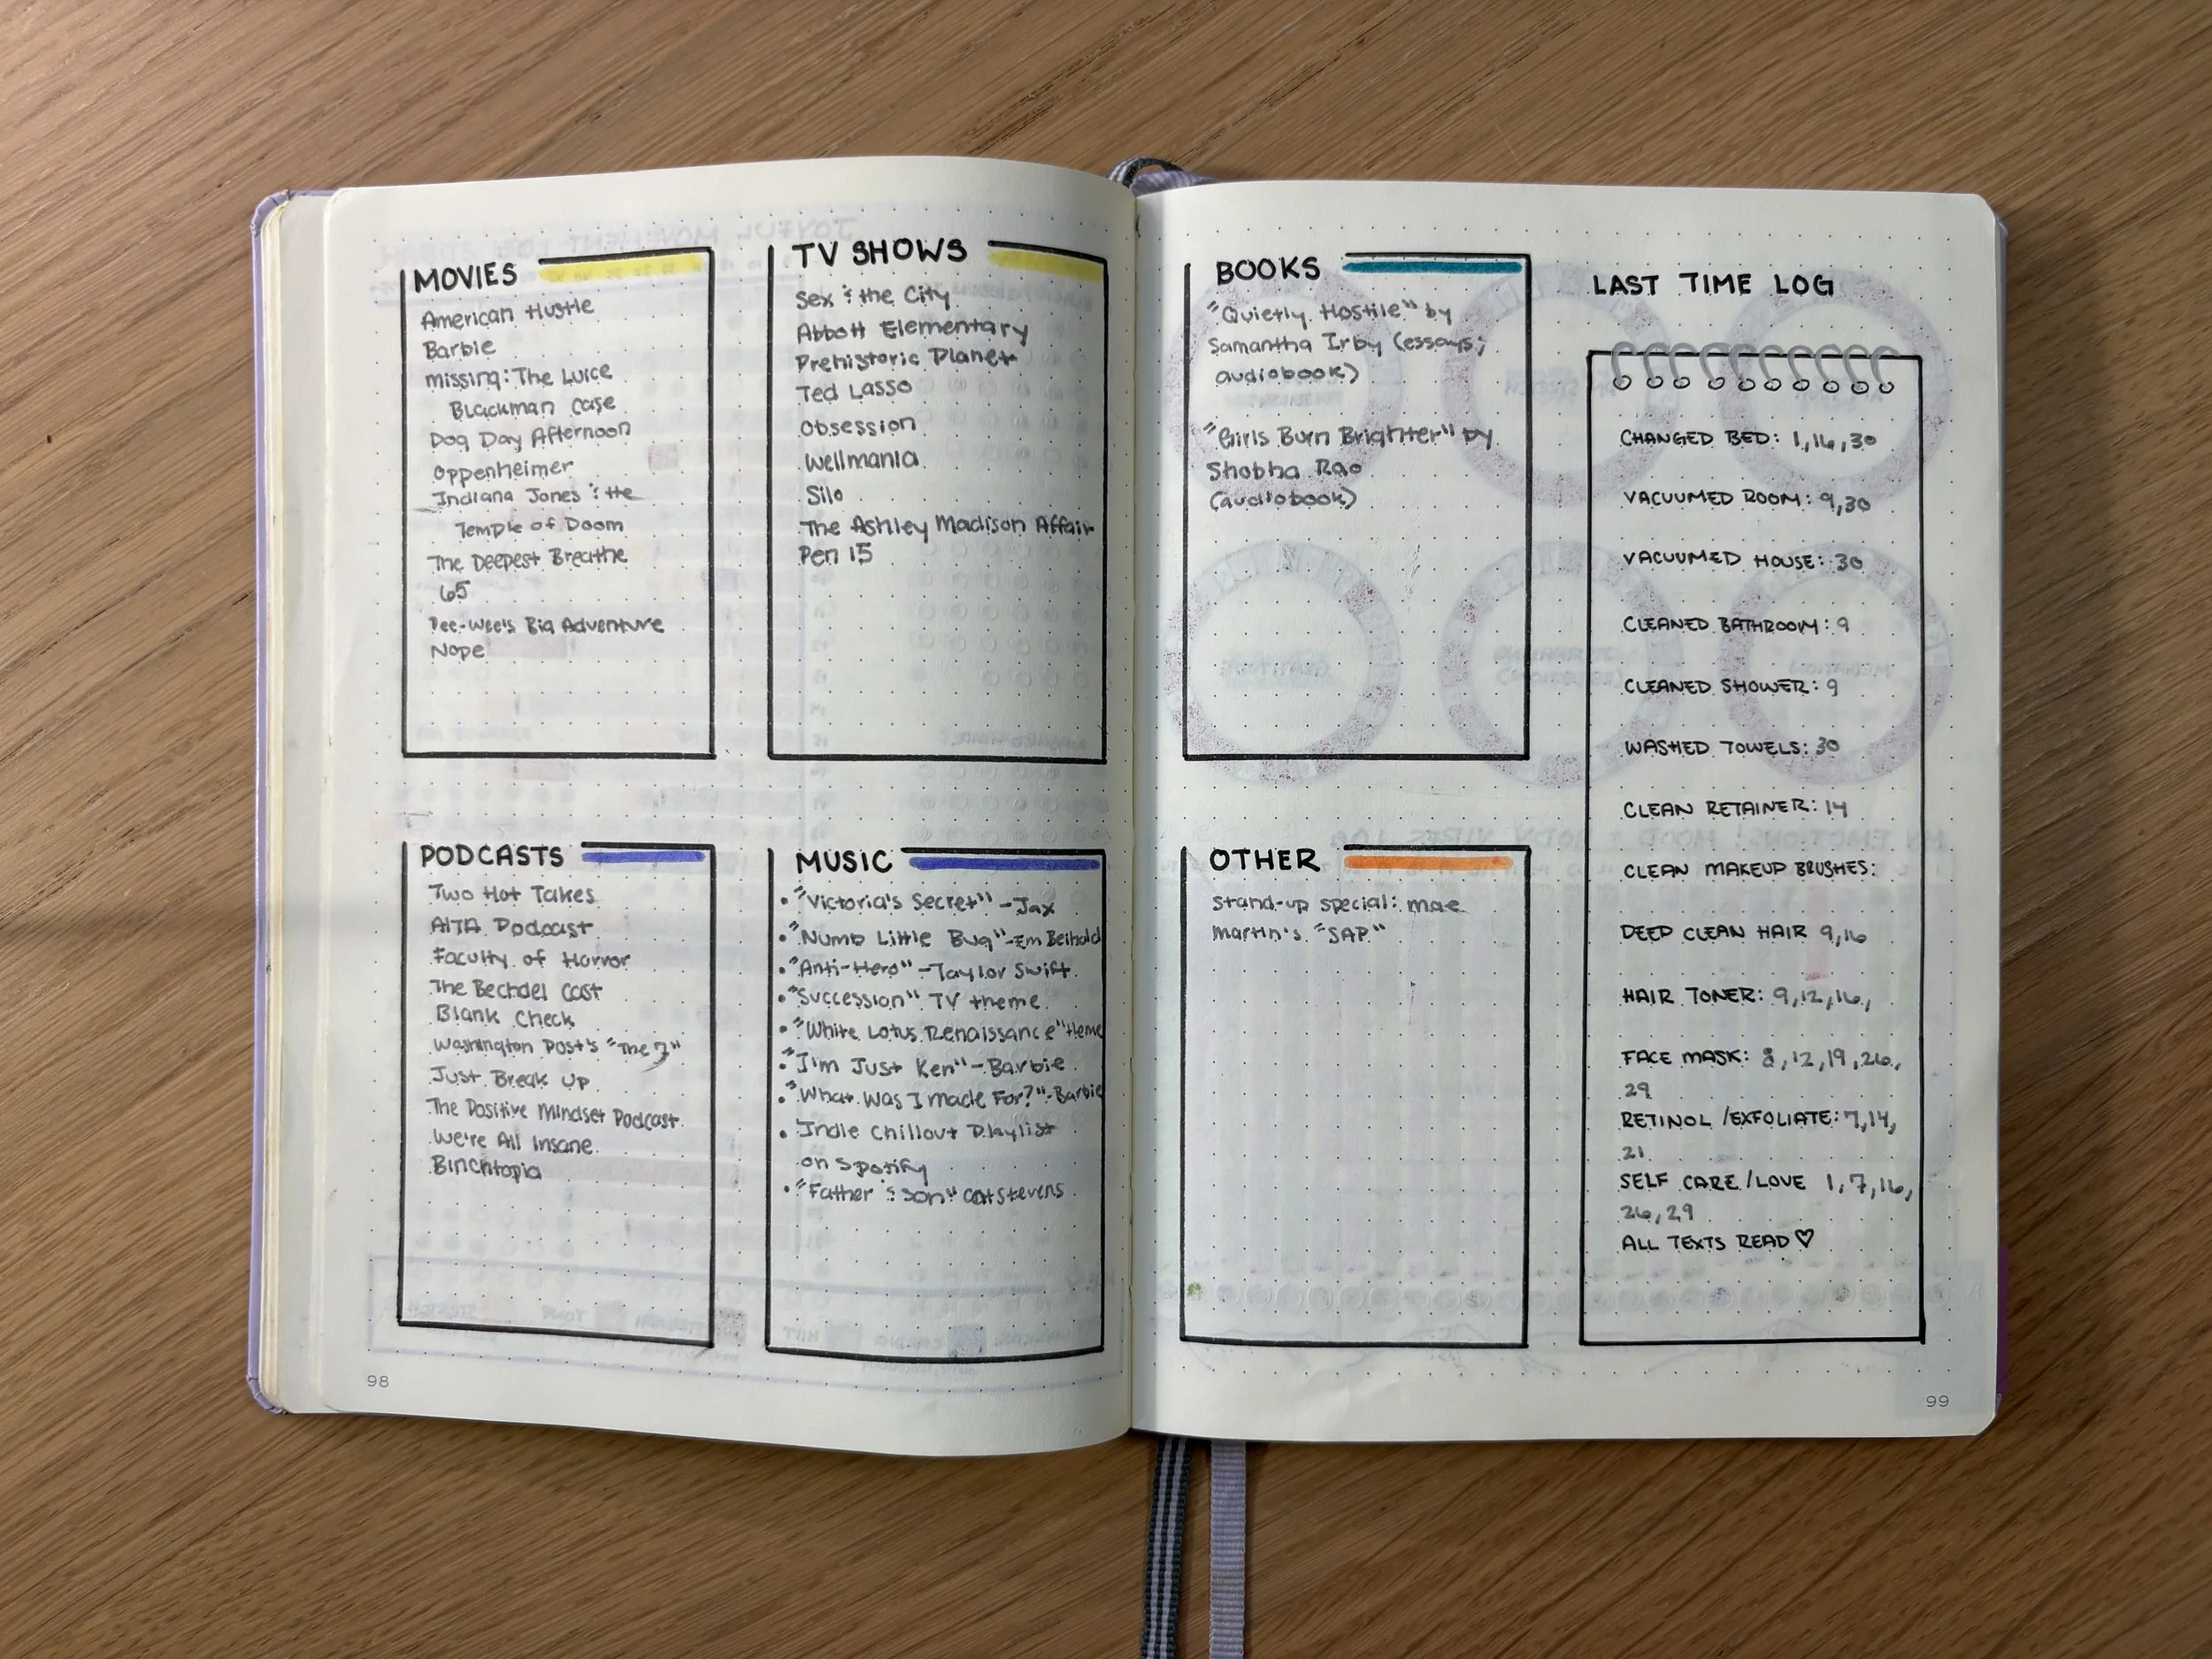 MOVIES
American Hustle
Barbie
Missing: The Lucie
Blackman Case
Dog Day Afternoon
Oppenheimer
Indiana Jones & the
Temple of Doom
The Deepest Breathe
65
Pee-Wee's Big Adventure
Nope
TV SHOWS
Sex & the City
Abbott Elementary
Prehistoric Planet
Ted Lasso
Obsession
Wellmania
Silo
The Ashley Madison Affair
Pen 15
PODCASTS
Two Hot Takes
AITA Podcast
Faculty of Horror
The Bechdel Cast
Blank Check
Washington Post's "The 7"
Just Break Up
The Positive Mindset Podcast
We're All Insane
Binchtopia
MUSIC
• "Victoria's Secret" - Jax
• "Numb Little Bug" - Em Beihold
• "Anti-Hero" - Taylor Swift
• "Succession" TV theme
• "White Lotus Renaissance" theme
• "I'm Just Ken" - Barbie
• "What Was I made For?" - Barbie
• Indie Chillout Playlist
on Spotify
• "Father & Son" Cat Stevens
98
BOOKS
"Quietly Hostile" by
Samantha Irby (essays;
audiobook)
"Girls Burn Brighter" by
Shobha Rao
(audiobook)
OTHER
Stand-up special: Mae
Martin's "SAP"
LAST TIME LOG
CHANGED BED: 1, 16, 30
VACUUMED ROOM: 9, 30
VACUUMED HOUSE: 30
CLEANED BATHROOM: 9
CLEANED SHOWER: 9
WASHED TOWELS: 30
CLEAN RETAINER: 14
CLEAN MAKEUP BRUSHES:
DEEP CLEAN HAIR 9, 16
HAIR TONER: 9, 12, 16,
FACE MASK: 8, 12, 19, 26,
29
RETINOL /EXFOLIATE: 7, 14,
21
SELF CARE/LOVE 1, 7, 16,
26, 29
ALL TEXTS READ ♡
99